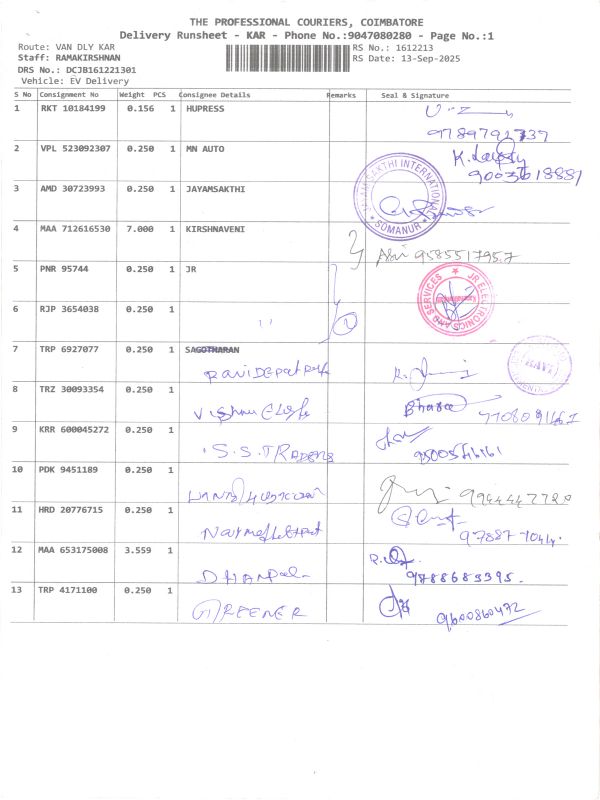 THE PROFESSIONAL COURIERS, COIMBATORE
Delivery Runsheet - KAR - Phone No.:9047080280 - Page No.:1
Route: VAN DLY KAR
RS No.: 1612213
Staff: RAMAKIRSHNAN
RS Date: 13-Sep-2025
DRS No.: DCJB161221301
Vehicle: EV Delivery
S No Consignment No Weight PCS Consignee Details Remarks Seal & Signature
1 RKT 10184199 0.156 1 HUPRESS
2 VPL 523092307 0.250 1 MN AUTO
9003618881
3 AMD 30723993 0.250 1 JAYAMSAKTHI
JAYAMSAKTHI INTERNATIONAL
SOMANUR
4 MAA 712616530 7.000 1 KIRSHNAVENI
9585517957
5 PNR 95744 0.250 1 JR
JR ELECTRONICS AND SERVICES
6 RJP 3654038 0.250 1 ,,
2
7 TRP 6927077 0.250 1 SAGOTHARAN
8 TRZ 30093354 0.250 1
Bharat
9 KRR 600045272 0.250 1 S.S.TRADERS
10 PDK 9451189 0.250 1
9944447720
11 HRD 20776715 0.250 1
97887-7044.
12 MAA 653175008 3.559 1 DHANPAL
9788685395.
13 TRP 4171100 0.250 1 GREENER
9600860472